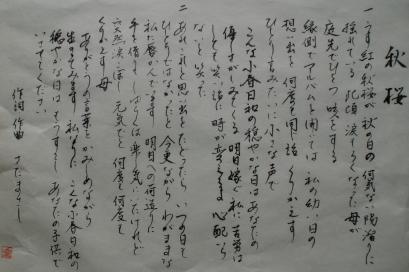 秋桜
一 うす紅の秋桜が秋の日の何気ない陽溜に
揺れている 此頃涙もろくなった母が
庭先でひとつ咳をする
縁側でアルバムを開いては 私の幼い日の
想い出を何度も同じ話くりかえす
ひとり言みたいに小さな声で
こんな小春日和の穏やかな日はあなたの
優しさがしみてくる 明日嫁ぐ私に苦労は
しても笑い話に時が変えるよ心配いら
ないと笑った
二 あれこれと思い出をたどったら いつの日も
ひとりではなかったと今更ながら わがままな
私に唇かんでいます 明日への荷造りに
手を借りて しばらくは楽し気にいたけれど
突然涙こぼし 元気でと何度も何度も
くりかえす母
ありがとうの言葉をかみしめながら
生きてみます 私なりに こんな小春日和の
穏やかな日はもう少しあなたの子供で
いさせてください
作詞 作曲 さだまさし